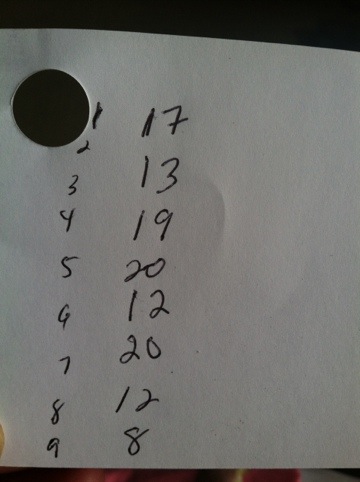 1 17
2
3 13
4 19
5 20
6 12
7 20
8 12
9 8